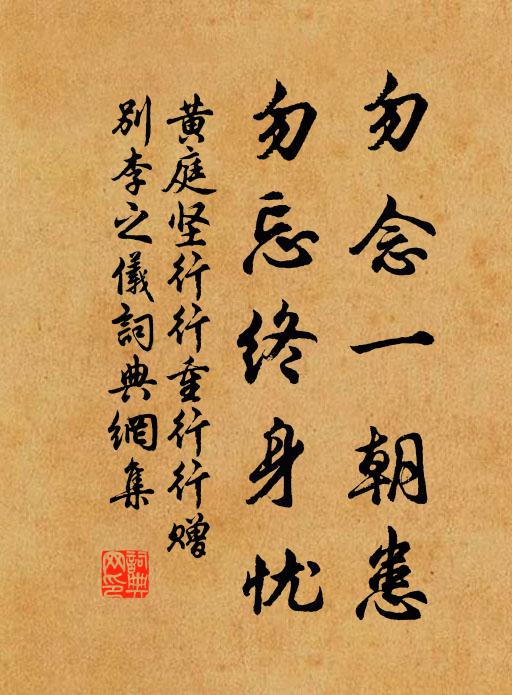 勿念一朝患
勿忘终身忧
黄庭坚行行重行行赠
别李之儀詞典網集
詞典
网印